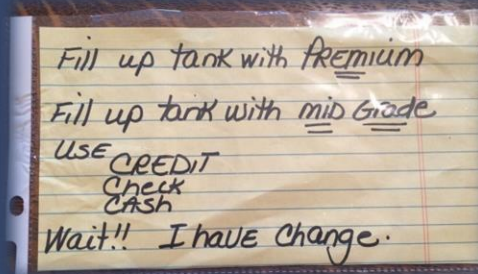 Fill up tank with PREMIUM
Fill up tank with MID Grade
USE CREDIT
Check
CASH
Wait!! I have change.